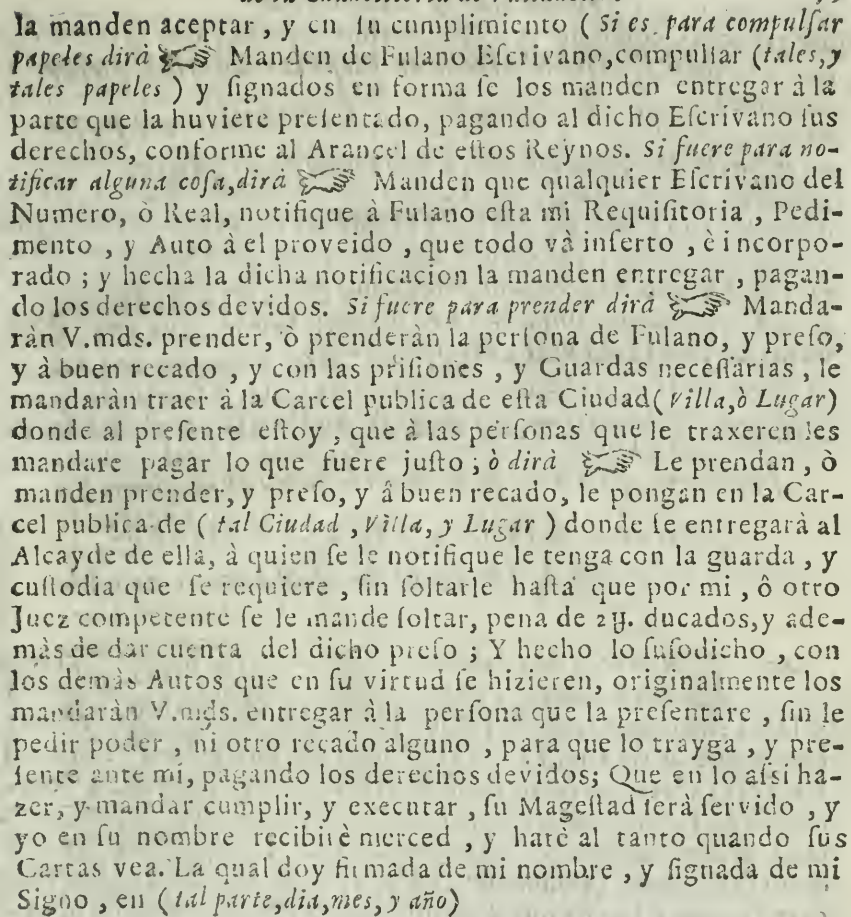 la manden aceptar, y en su cumplimiento (Si es para compulsar
papeles dirà ☞ Manden de Fulano Escrivano, compulsar (tales, y
tales papeles) y signados en forma se los manden entregar à la
parte que la huviere presentado, pagando al dicho Escrivano sus
derechos, conforme al Arancel de estos Reynos. Si fuere para no-
tificar alguna cosa, dirà ☞ Manden que qualquier Escrivano del
Numero, ò Real, notifique à Fulano esta mi Requisitoria, Pedi-
mento, y Auto à el proveido, que todo và inserto, è incorpo-
rado; y hecha la dicha notificacion la manden entregar, pagan-
do los derechos devidos. Si fuere para prender dirà ☞ Manda-
ràn V.mds. prender, ò prenderàn la persona de Fulano, y preso,
y à buen recado, y con las prisiones, y Guardas necessarias, le
mandaràn traer à la Carcel publica de esta Ciudad (Villa, ò Lugar)
donde al presente estoy, que à las personas que le traxeren les
mandare pagar lo que fuere justo; ò dirà ☞ Le prendan, ò
manden prender, y preso, y â buen recado, le pongan en la Car-
cel publica de (tal Ciudad, Villa, y Lugar) donde se entregarà al
Alcayde de ella, à quien se le notifique le tenga con la guarda, y
custodia que se requiere, sin soltarle hasta que por mi, ô otro
Juez competente se le mande soltar, pena de 2U. ducados, y ade-
màs de dar cuenta del dicho preso; Y hecho lo susodicho, con
los demàs Autos que en su virtud se hizieren, originalmente los
mandaràn V.mds. entregar à la persona que la presentare, sin le
pedir poder, ni otro recado alguno, para que lo trayga, y pre-
sente ante mi, pagando los derechos devidos; Que en lo assi ha-
zer, y mandar cumplir, y executar, su Magestad serà servido, y
yo en su nombre recibirè merced, y harè al tanto quando sus
Cartas vea. La qual doy firmada de mi nombre, y signada de mi
Signo, en (tal parte, dia, mes, y año)